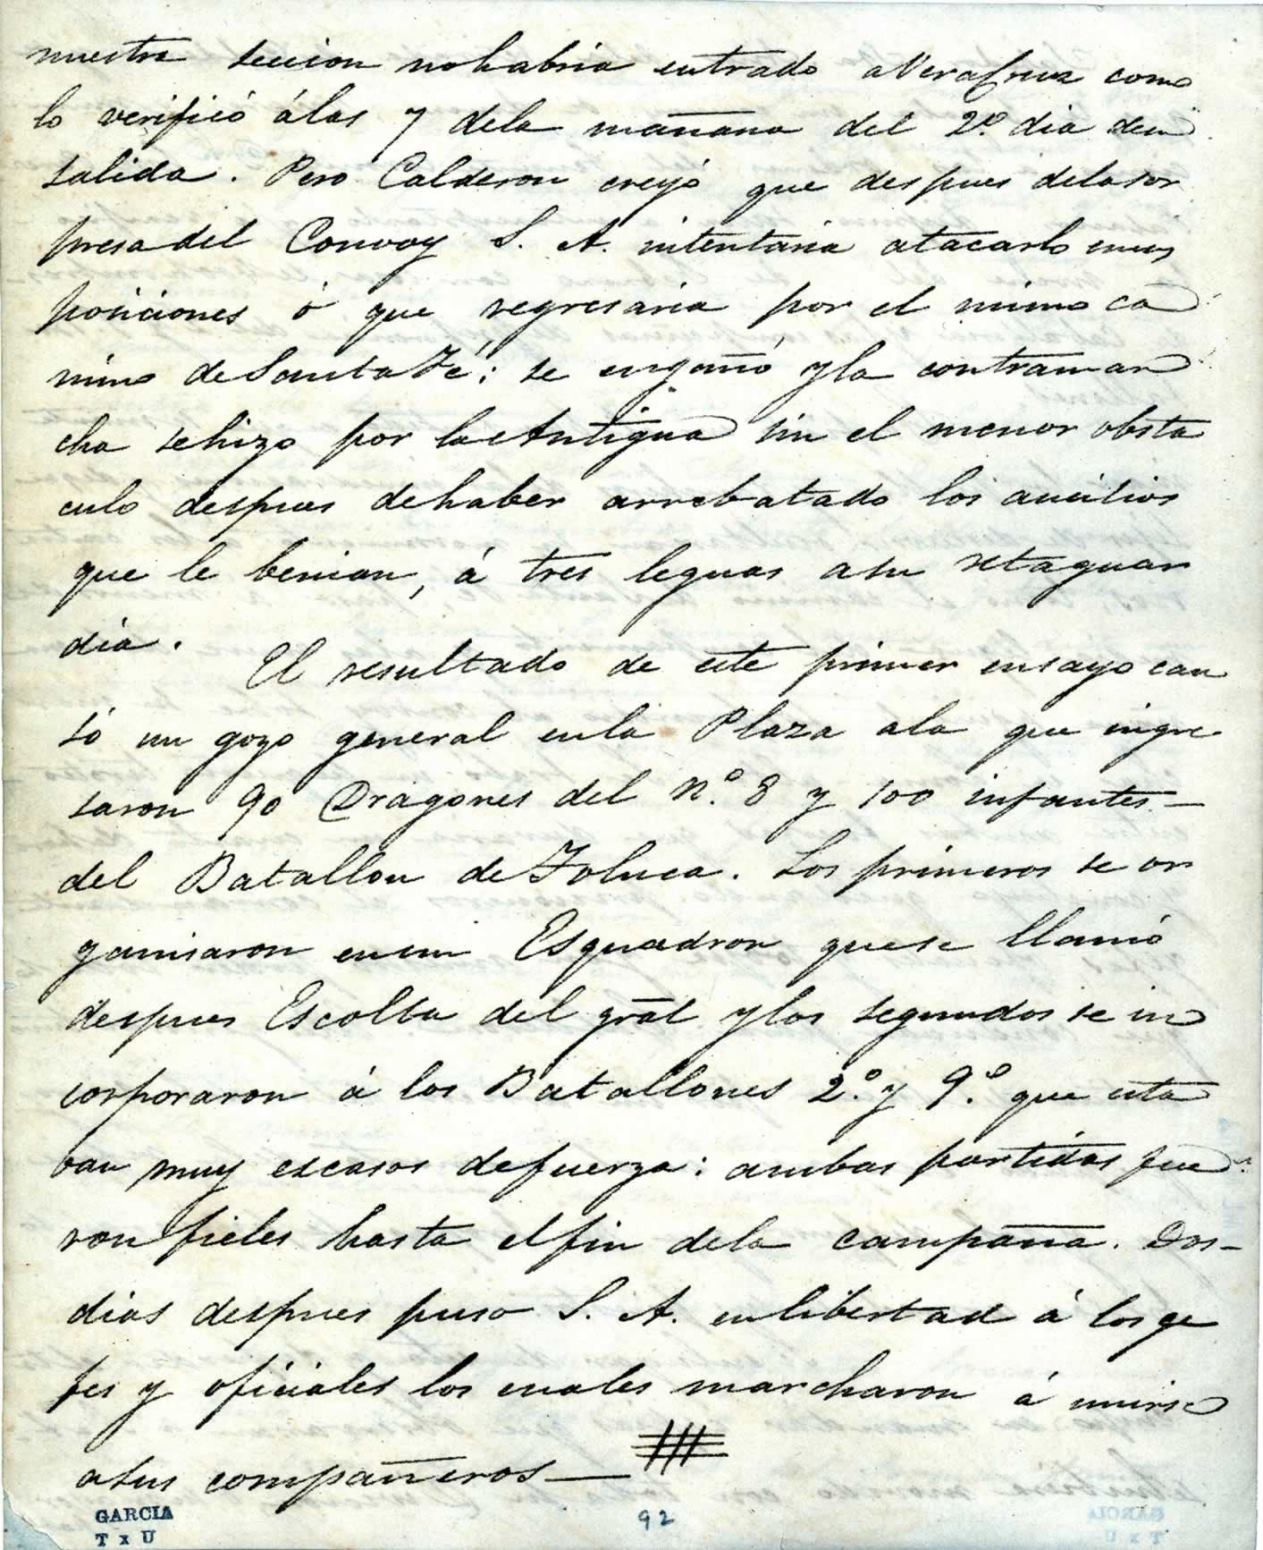 nuestra seccion nohabria entrado aVeraCruz como
lo verificó álas 7 dela mañana del 2.º dia desu
salida. Pero Calderon creyó que despues delasor
presadel Convoy S. A. intentaria atacarlo ensus
posiciones ó que regresaria por el mismo ca
mino deSantaFé: se engañó yla contramar
cha sehizo por laAntigua sin el menor obsta
culo despues dehaber arrebatado los aucilios
que le benian, á tres leguas asu retaguar
dia.
El resultado de este primer ensayo cau
só un gozo general enla Plaza ala que ingre
saron 90 Dragones del N.º 8 y 100 infantes
del Batallon deToluca. Los primeros se or
ganisaron enun Esquadron quese llamó
despues Escolta del gral ylos segundos se in
corporaron á los Batallones 2.º y 9.º que esta
ban muy escasos defuerza: ambas partidas fue
ron fieles hasta elfin dela campaña. Dos
dias despues puso S. A. enlibertad á los ge
fes y oficiales los cuales marcharon á unirse
asus compañeros
GARCIA
T x U
92